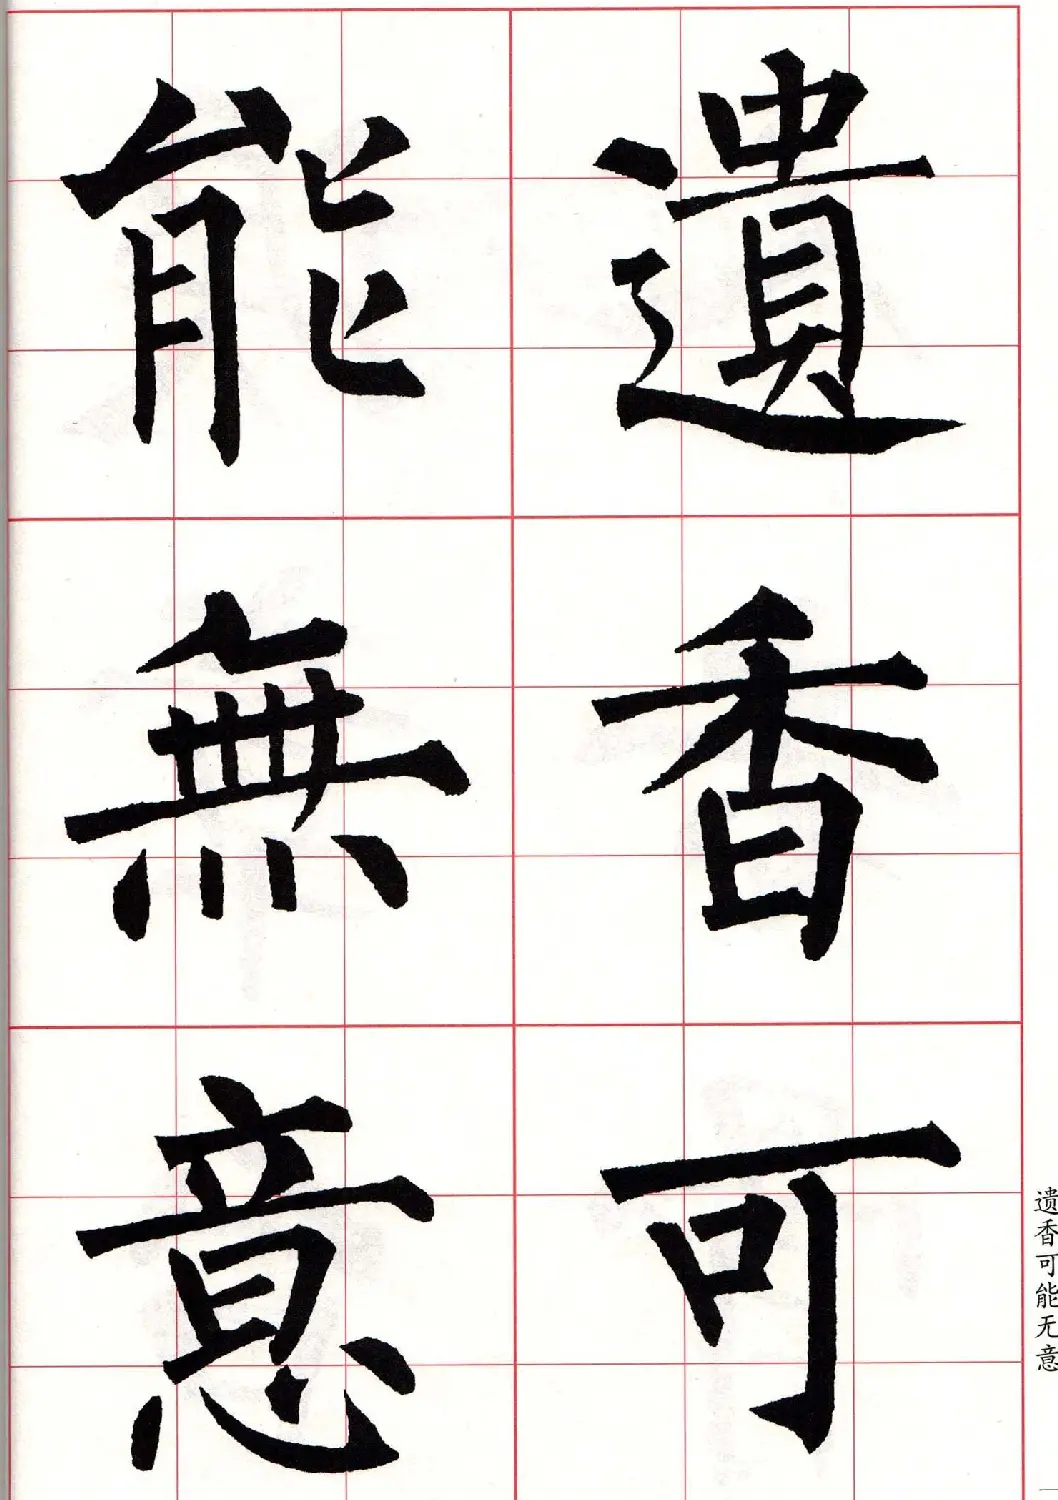 遺香可
能無意
遗香可能无意